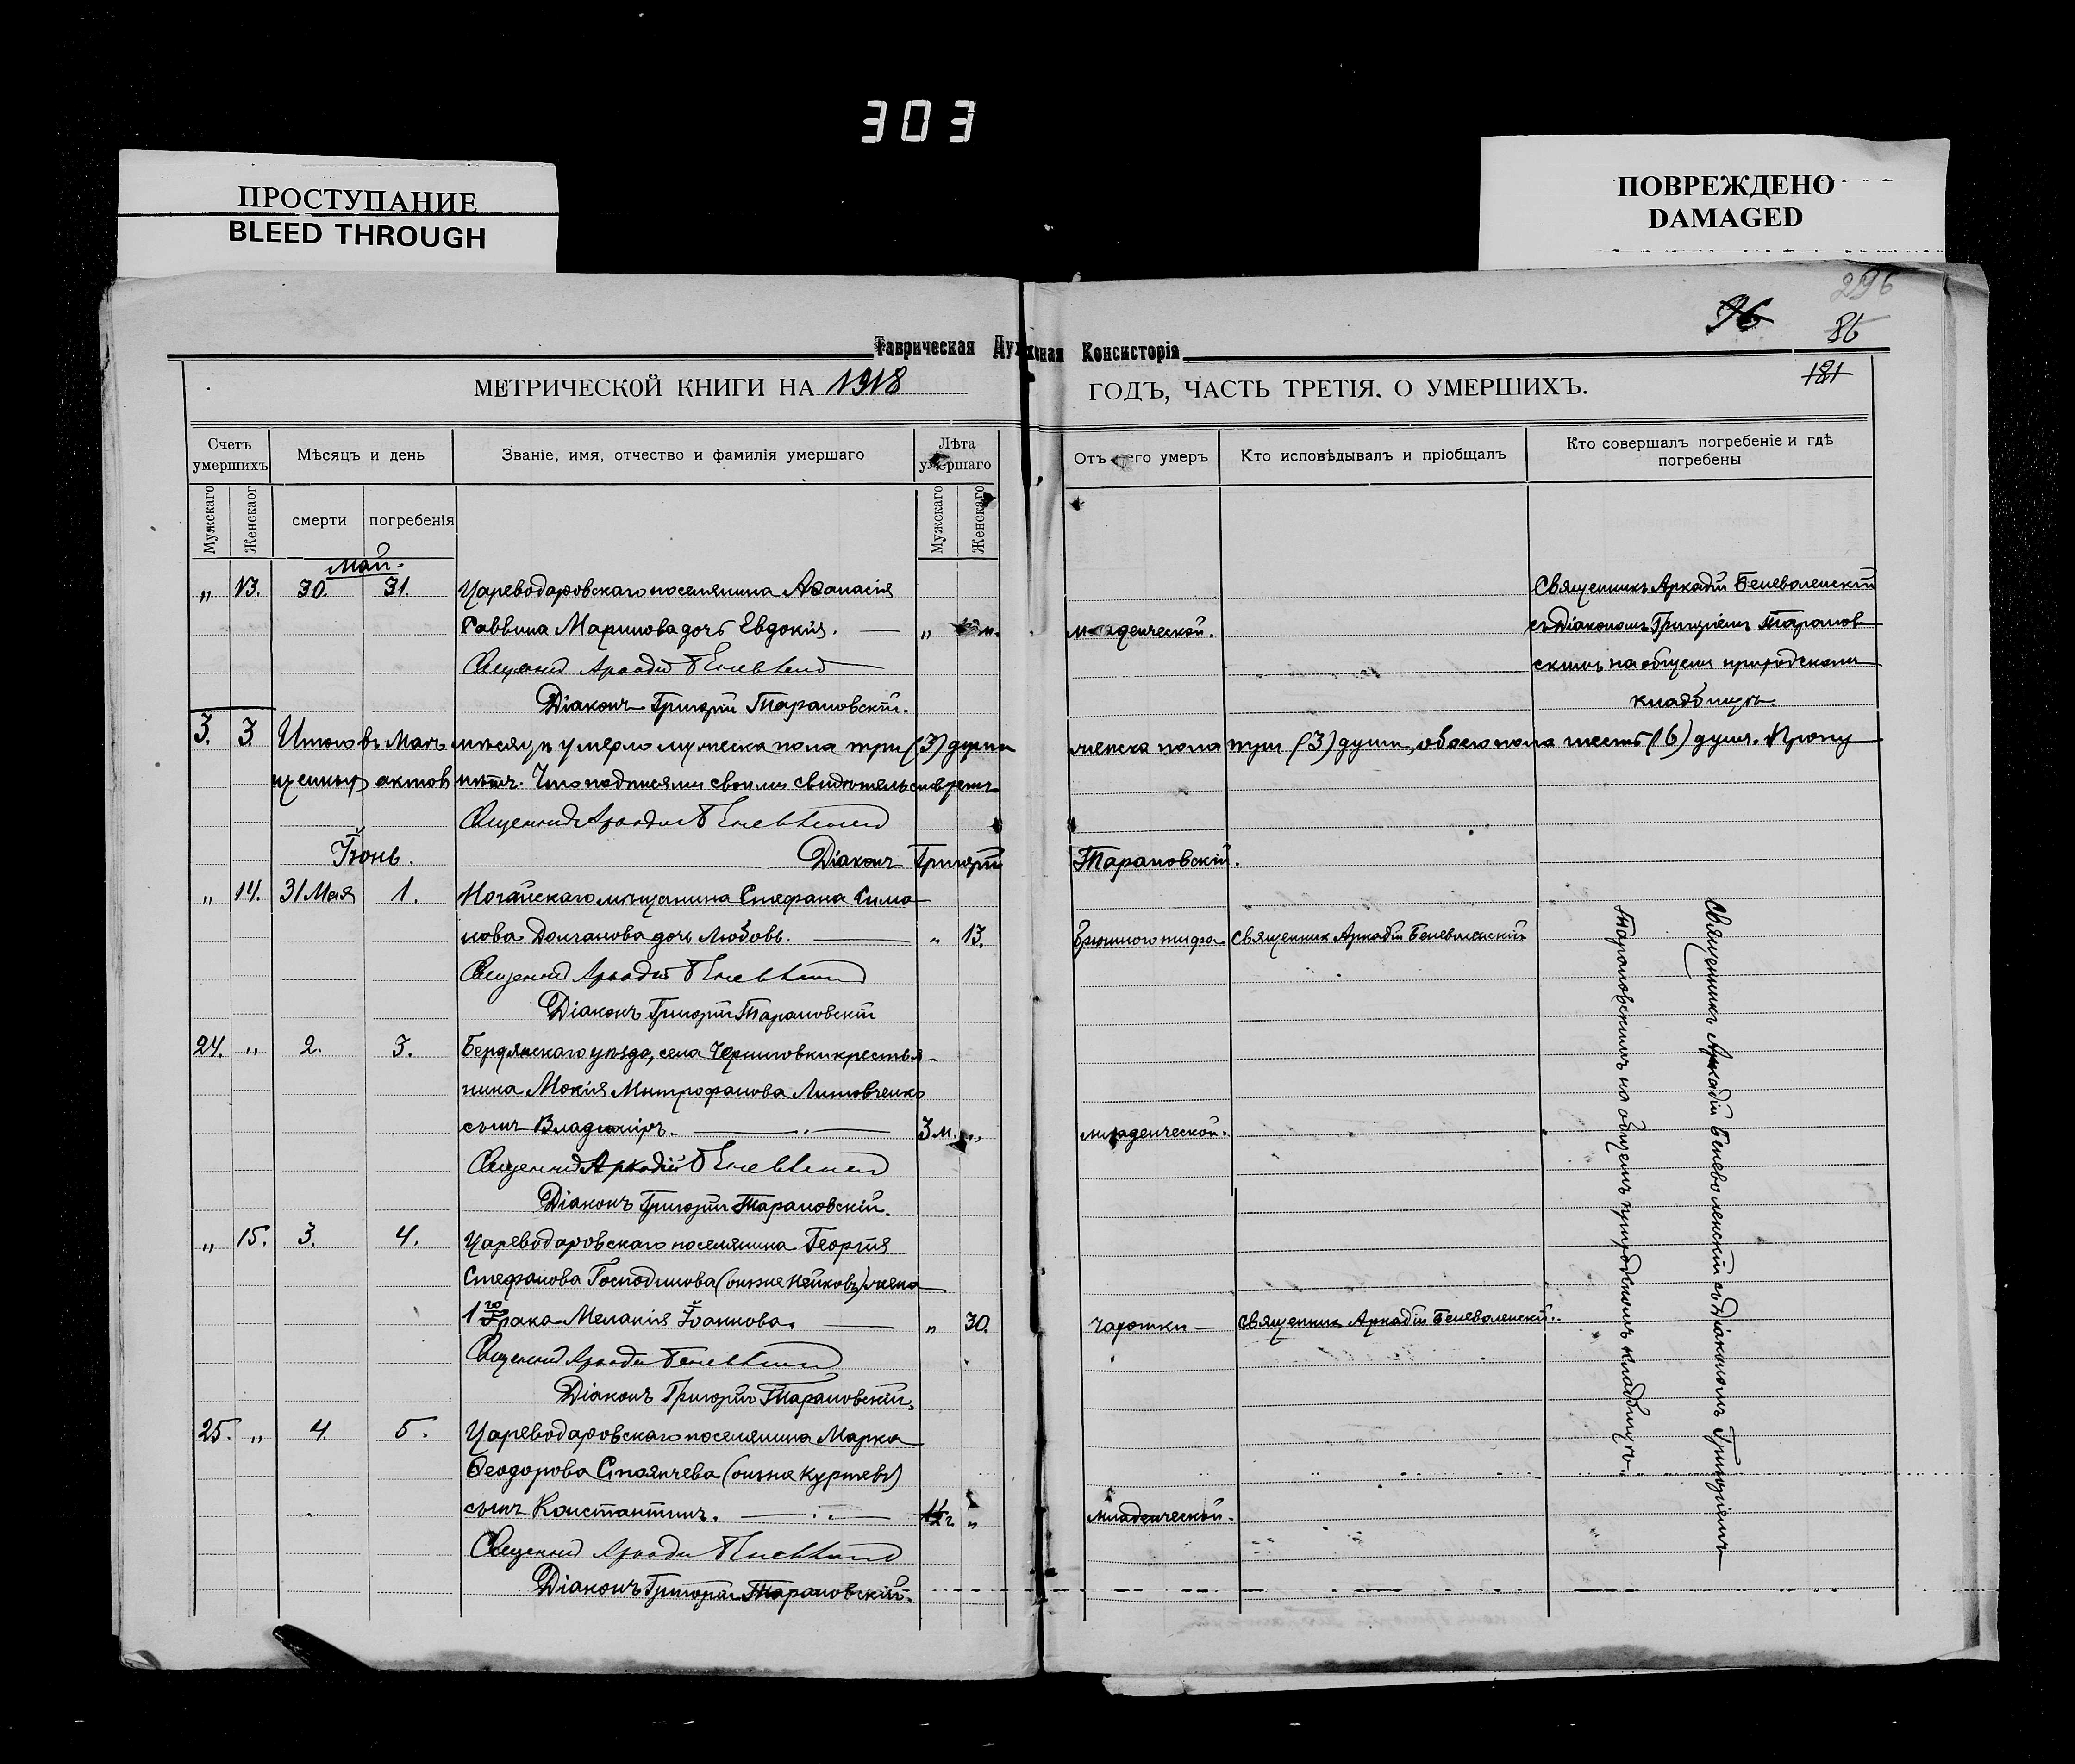 303
ПРОСТУПАНИЕ
BLEED THROUGH
ПОВРЕЖДЕНО
DAMAGED
296
96
86
181
Таврическая Духовная Консисторія
МЕТРИЧЕСКОЙ КНИГИ НА 1918 ГОДЪ, ЧАСТЬ ТРЕТІЯ. О УМЕРШИХЪ.
Счетъ умершихъ
Мѣсяцъ и день
Званіе, имя, отчество и фамилія умершаго
Лѣта умершаго
Отъ чего умеръ
Кто исповѣдывалъ и пріобщалъ
Кто совершалъ погребеніе и гдѣ погребены
Мужскаго
Женскаог
смерти
погребенія
Мужскаго
Женскаго
Май.
„ 13. 30. 31. Цареводаровскаго поселянина Аѳанасія Священникъ Аркадій Беневоленскій
Саввина Маринова дочь Евдокія. „ м. младенческой. съ Діакономъ Григоріемъ Таранов
Священникъ Аркадій Беневоленскій скимъ на общемъ приходскомъ
Діаконъ Григорій Тарановскій. кладбищѣ.
3. 3 Итого въ Маѣ мѣсяцѣ умерло мужеска пола три (3) души женска пола три (3) души, обоего пола шесть (6) душъ. Пропу
щенныхъ актовъ нѣтъ. Что подписями своими свидѣтельствуемъ
Священникъ Аркадій Беневоленскій
Іюнь. Діаконъ Григорій Тарановскій.
„ 14. 31 Мая 1. Ногайскаго мѣщанина Стефана Симо
нова Долганова дочь Любовь. „ 13. брюшного тифа Священник Аркадій Беневоленскій
Священникъ Аркадій Беневоленскій
Діаконъ Григорій Тарановскій
24. „ 2. 3. Бердянскаго уѣзда, села Черниговки крестья
нина Мокія Митрофанова Литовченко
сынъ Владиміръ. 3 м. „ младенческой.
Священникъ Аркадій Беневоленскій
Діаконъ Григорій Тарановскій.
„ 15. 3. 4. Цареводаровскаго поселянина Георгія
Стефанова Господинова (онъ же Нейковъ) жена
1го брака Меланія Іоаннова. „ 30. чахотки Священникъ Аркадій Беневоленскій.
Священникъ Аркадій Беневоленскій
Діаконъ Григорій Тарановскій.
25. „ 4. 5. Цареводаровскаго поселянина Марка
Ѳеодорова Стоянчева (онъ же Куртевъ)
сынъ Константинъ. 1½ г „ младенческой.
Священникъ Аркадій Беневоленскій
Діаконъ Григорій Тарановскій.
Священникъ Аркадій Беневоленскій съ Діакономъ Григоріемъ
Тарановскимъ на общемъ приходскомъ кладбищѣ.